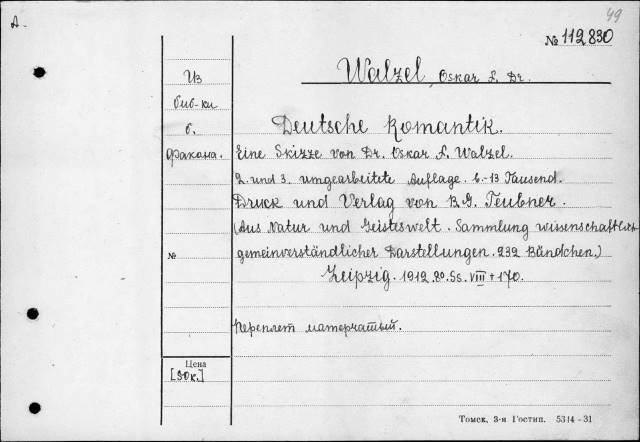 49
A.
№ 112830
Walzel, Oskar F. Dr.
Из
биб-ки
б.
факона.
Deutsche Romantik.
Eine Skizze von Dr. Oskar F. Walzel.
2. und 3. umgearbeitete Auflage. 6.-13 Tausend.
Druck und Verlag von B.G. Teubner.
(Aus Natur und Geisteswelt. Sammlung wissenschaftlich
gemeinverständlicher Darstellungen. 232 Bändchen.)
№
Leipzig. 1912. 8o. Ss. VIII + 170.
Переплет матерчатый.
Цена
[30к.]
Томск, 3-я Гостип. 5314-31